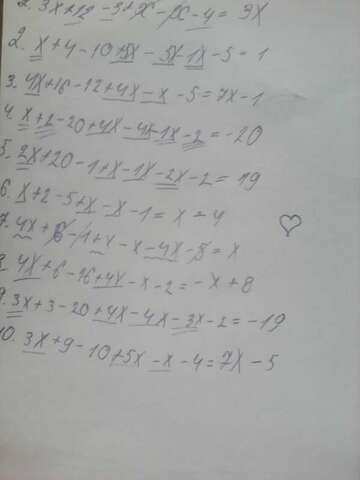 3x+12-3+x-x-4=9x
2. x+4-10+5x-5x-1x-5=1
3. 4x+16-12+4x-x-5=7x-1
4. x+2-20+4x-4x-1x-2=-20
5. 2x+20-1+x-1x-2x-2=19
6. x+2-5+x-x-1=x-4
7. 4x+8-1+x-x-4x-8=x
8. 4x+6-16+4x-x-2=-x+8
9. 3x+3-20+4x-4x-3x-2=-19
10. 3x+9-10+5x-x-4=7x-5